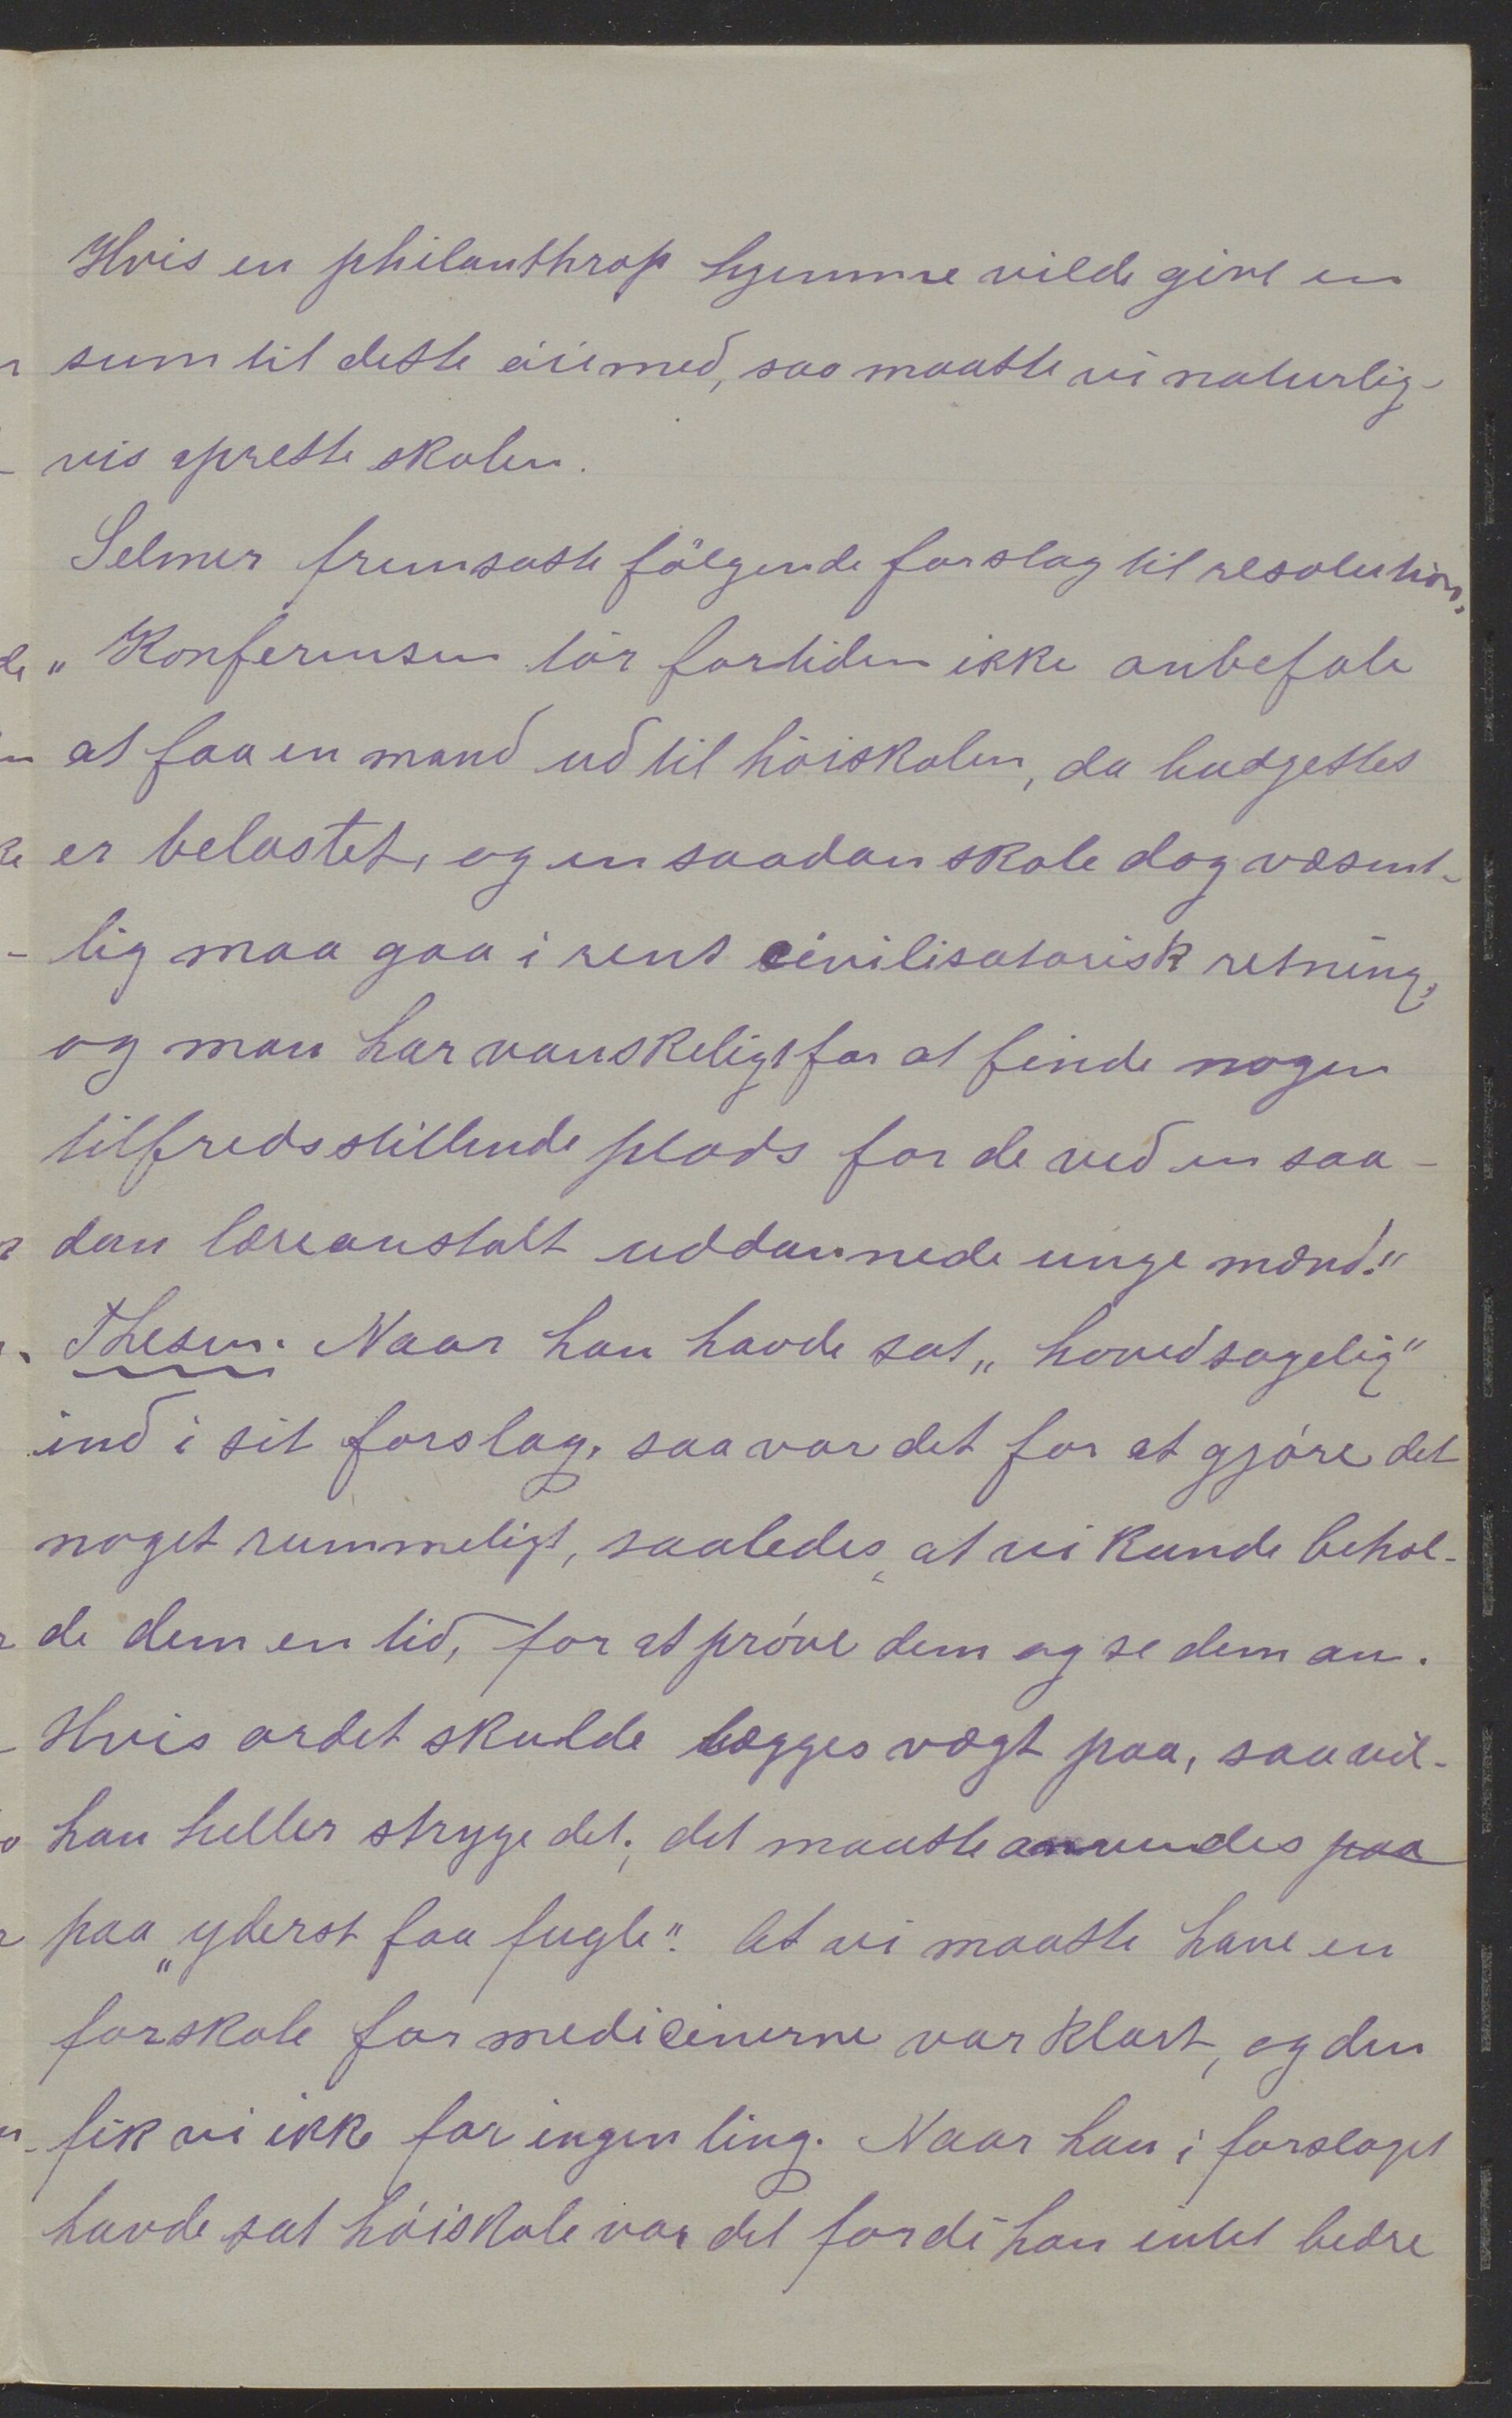 Hvis en philanthrop hjemme vilde give en
sum til dette öiemed, saa maatte vi naturlig-
vis oprette skolen.
Selmer fremsatte fölgende forslag til resolution:
"Konferensen tör fortiden ikke anbefale
at faa en mand ud til höiskolen, da budgettet
er belastet, og en saadan skole dog væsent-
lig maa gaa i rent civilisatorisk retning,
og man har vanskeligt for at finde nogen
tilfredsstillende plads for de ved en saa-
dan læreanstalt uddannede unge mænd."
Thesen. Naar han havde sat "hovedsagelig"
ind i sit forslag, saa var det for at gjöre det
noget rummeligt, saaledes, at vi kunde behol-
de dem en tid, for at pröve dem og se dem an.
Hvis ordet skulde lægges vægt paa, saa vil-
han heller stryge det; det maatte anvendes paa
paa "yderst faa fugle". At vi maatte have en
forskole for medicinerne var klart, og den
fik vi ikke for ingen ting. Naar han i forslaget
havde sat höiskole var det fordi han intet bedre